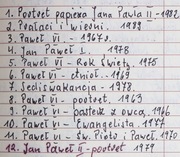 1. Portret papieża Jana Pawła II - 1982
2. Postaci i więzieni. 1983
3. Paweł VI. - 1967r.
4. Jan Paweł I. 1978
5. Paweł VI - Rok Święty. 1975
6. Paweł VI - 1969
7. Sediswakancja - 1978.
8. Paweł VI - portret. 1963
9. Paweł VI - pasterz z owcą. 1966
10. Paweł VI - Ewangelista. 1977
11. Paweł VI - Św. Piotr i Paweł, 1970
12. Jan Paweł II - portret 1979